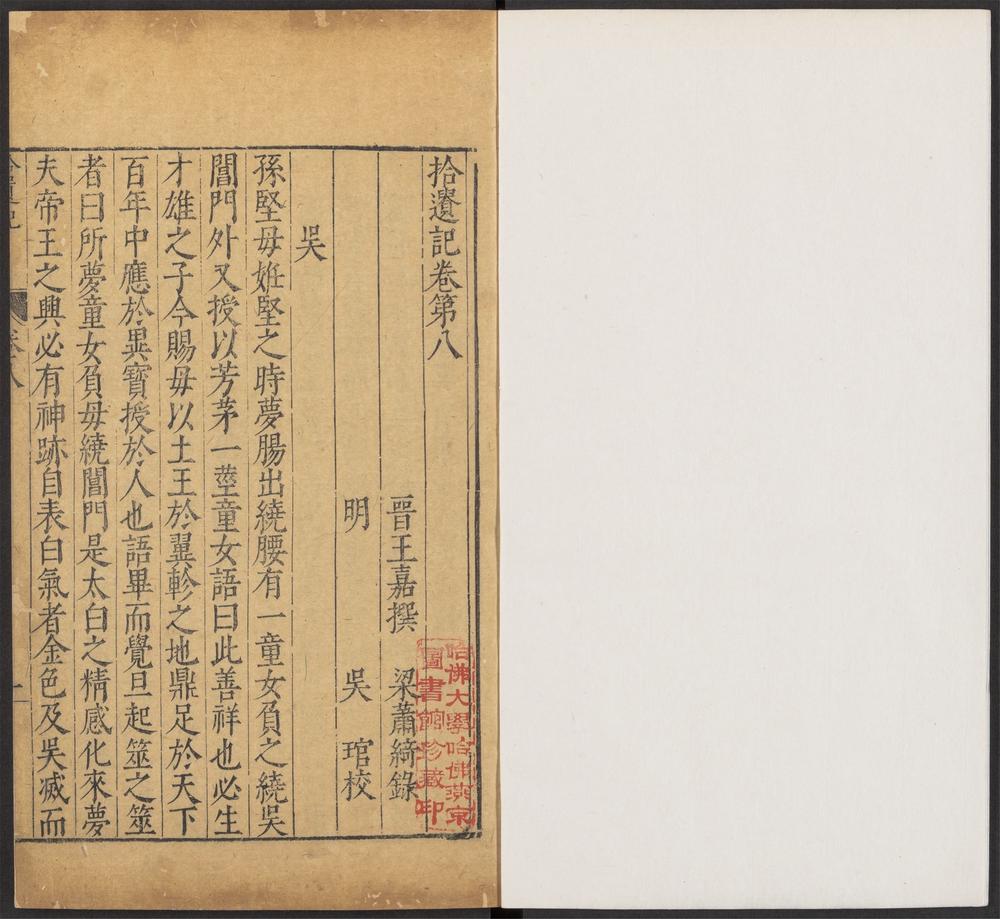 拾遺記卷第八
晉王嘉撰 梁蕭綺錄
明 吳琯校
吳
孫堅毋姙堅之時夢腸出繞腰有一童女負之繞吳
閶門外又授以芳茅一莖童女語曰此善祥也必生
才雄之子今賜毋以土王於翼軫之地鼎足於天下
百年中應於異寶授於人也語畢而覺旦起筮之筮
者曰所夢童女負毋繞閶門是太白之精感化來夢
夫帝王之興必有神跡自表白氣者金色及吳滅而
哈佛大學哈佛燕京
圖書館珍藏印